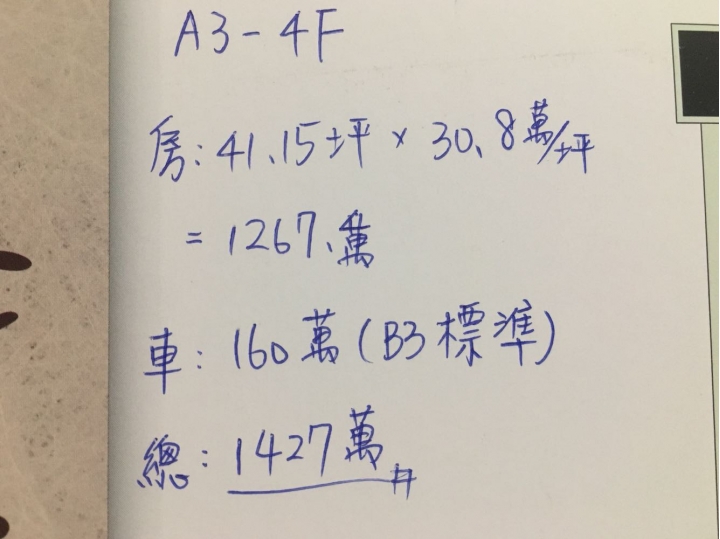 A3-4F
房:41.15坪 × 30.8萬/坪
= 1267.萬
車:160萬(B3標準)
總:1427萬#